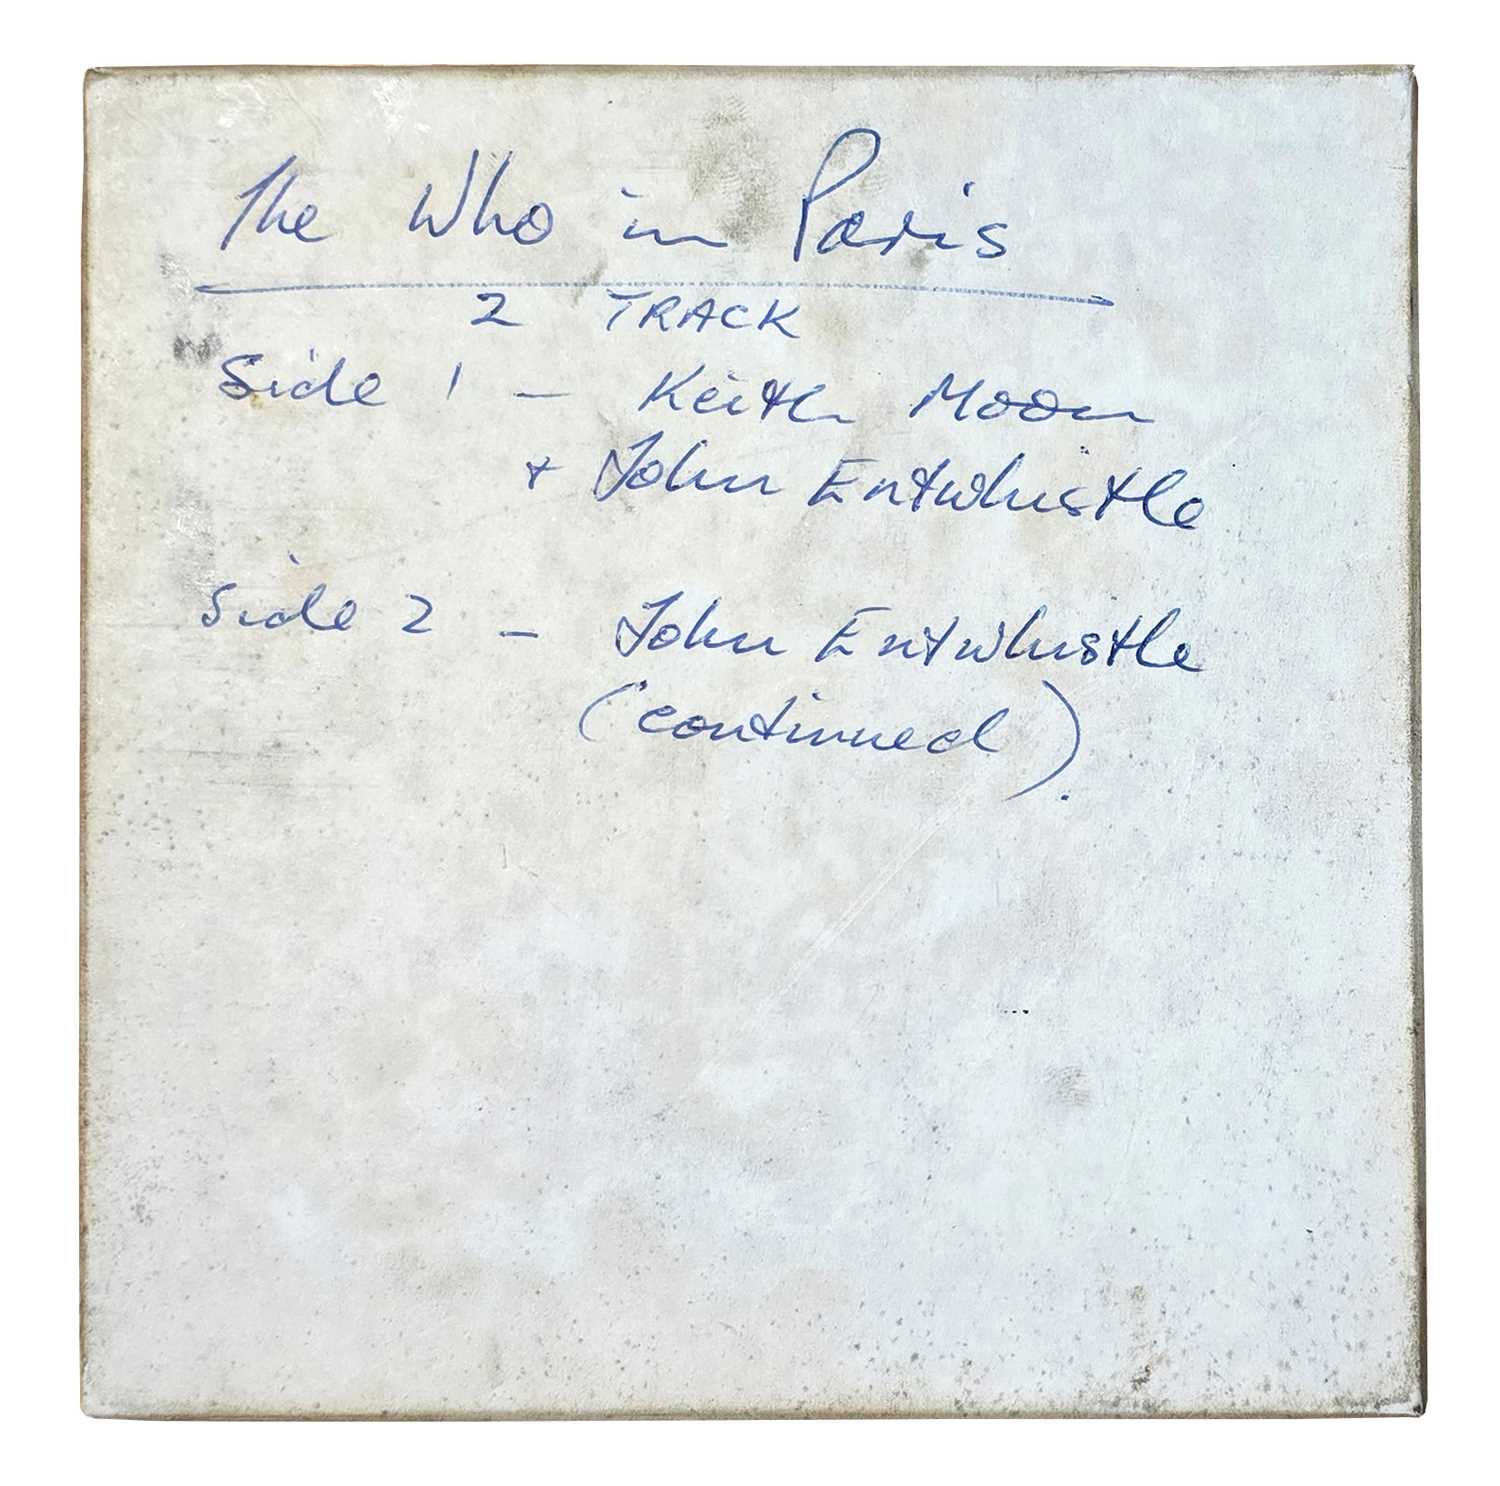 The Who in Paris
2 TRACK
Side 1 - Keith Moon
+ John Entwhistle
Side 2 - John Entwhistle
(continued).